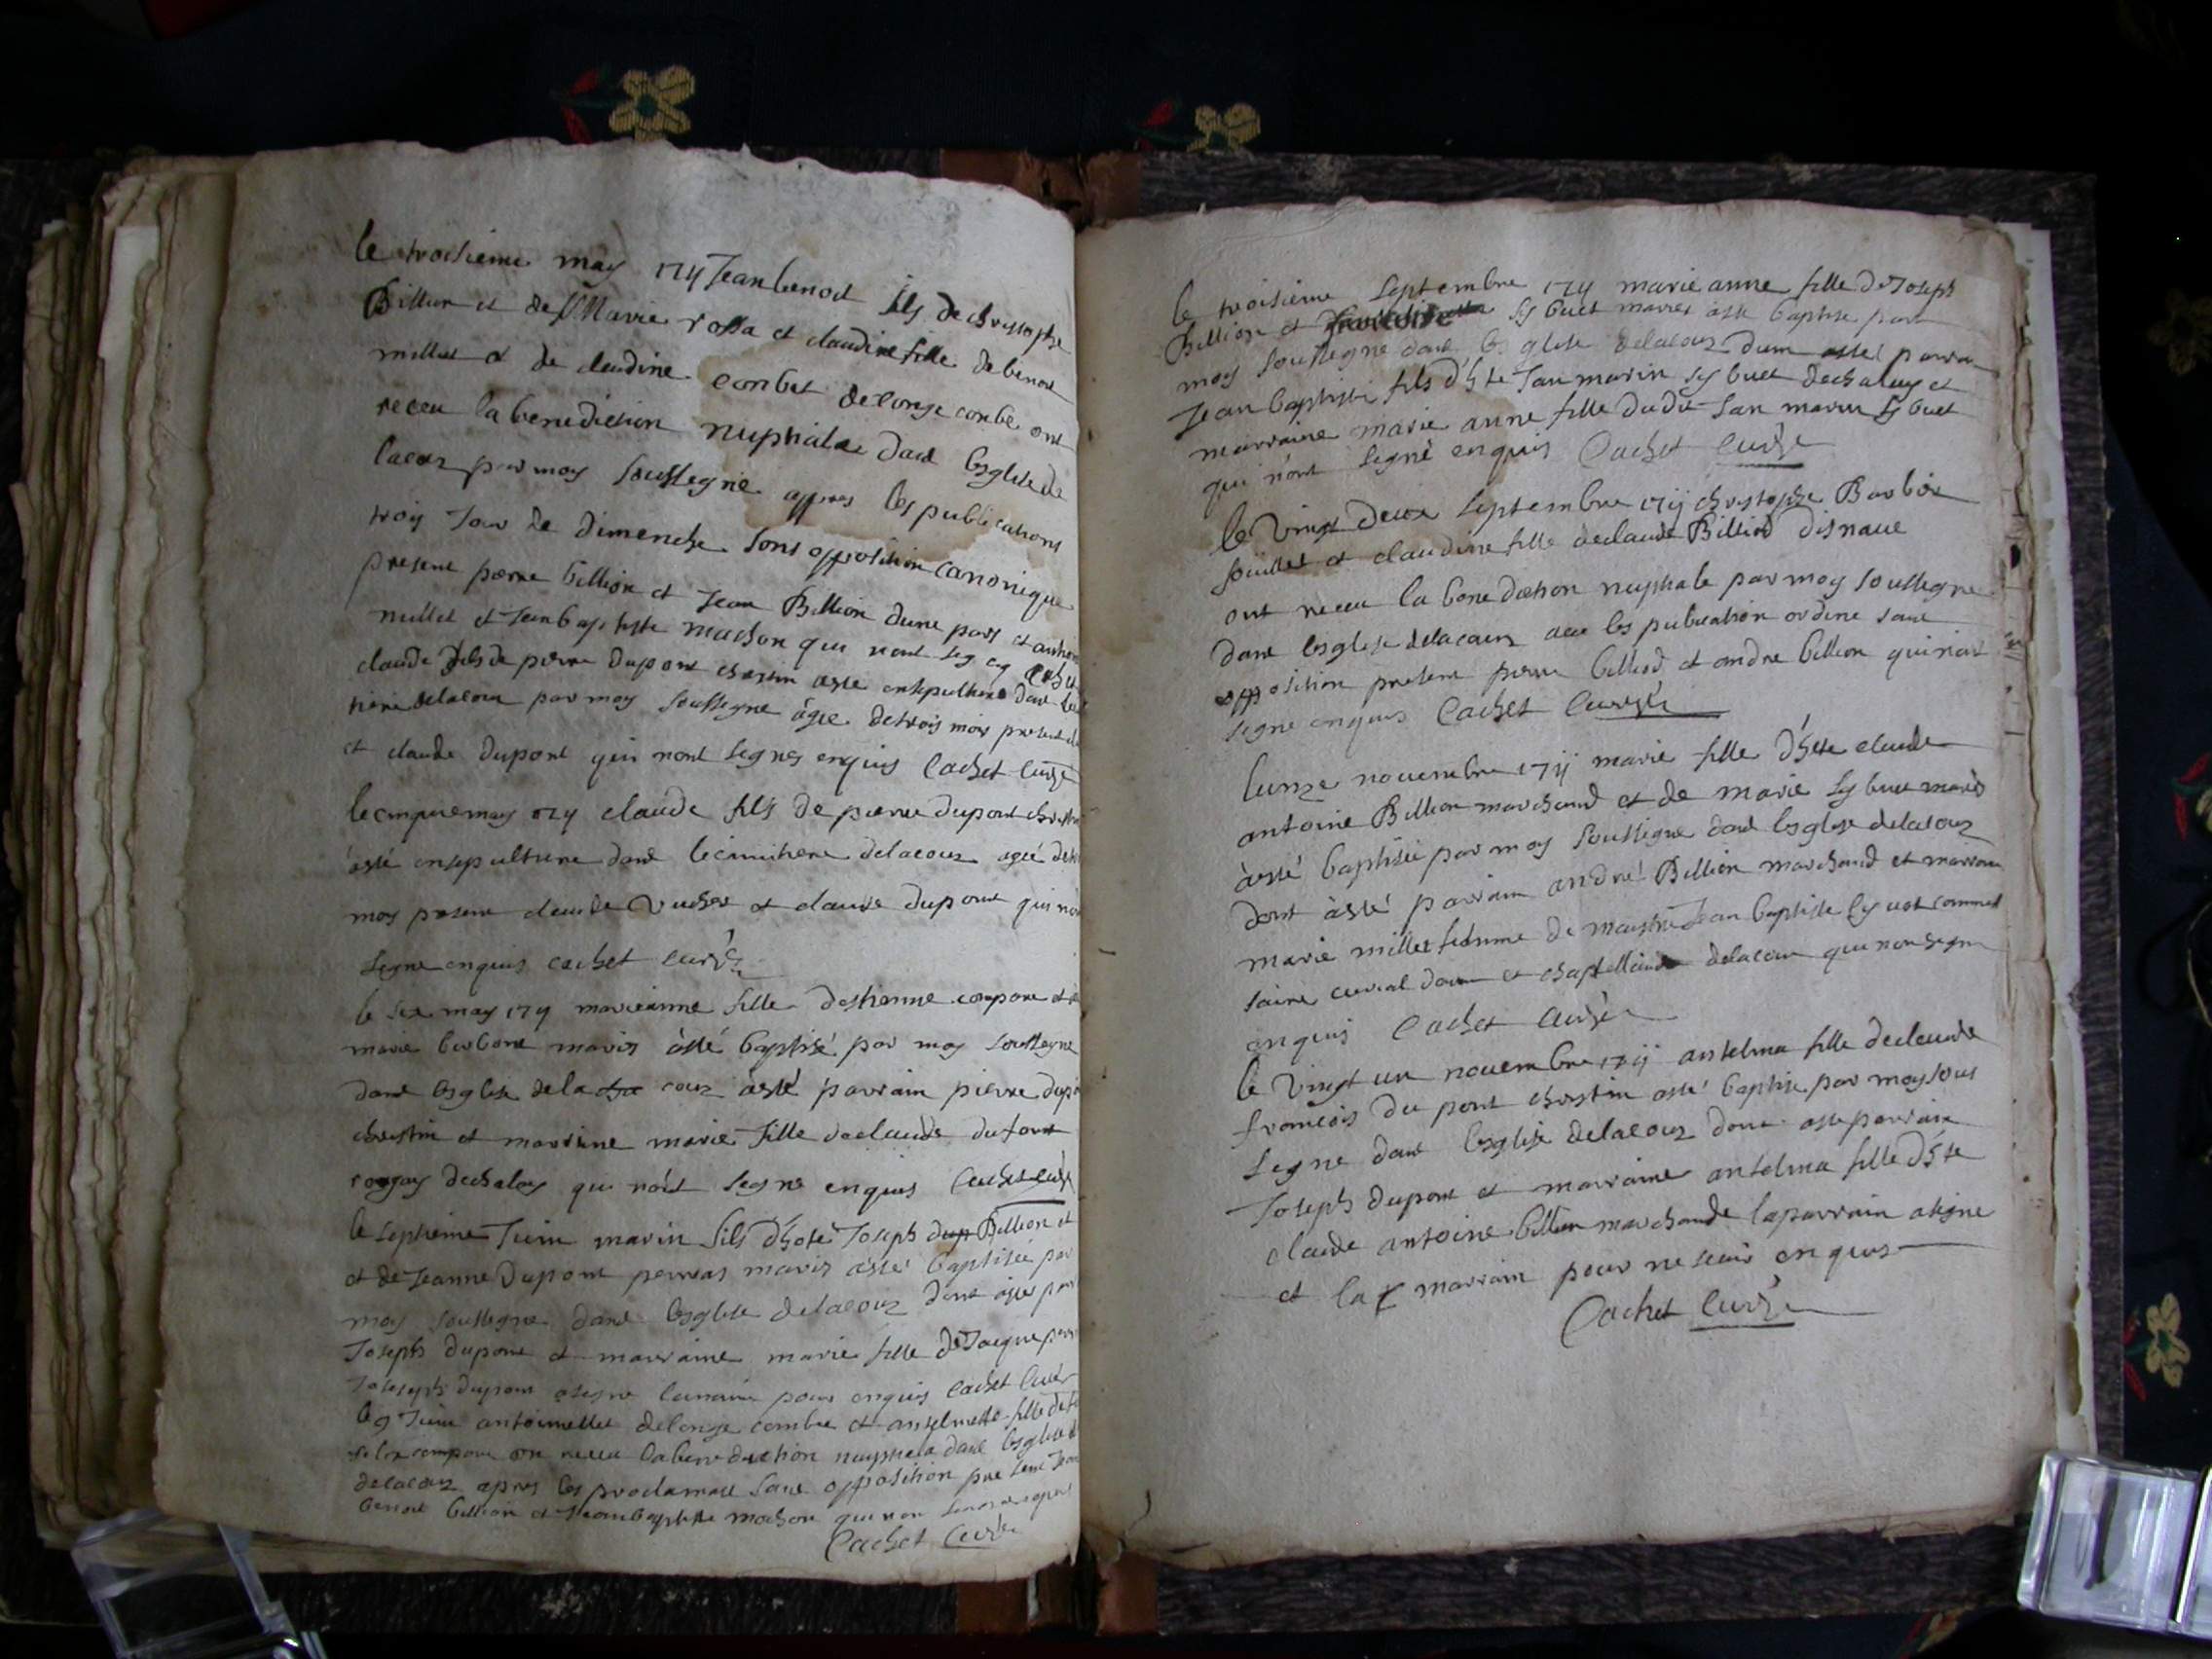 le troisieme may 1711 Jean benoit fils de christophe
Billion et de Marie rossa et claudine fille de benoit
millet et de claudine conbet de longe conbe ont
receu la benediction nuptiale dans lesglise de
lacoux par moy soussegné appres les publications
trois Jour de dimenche sans opposition canonique
present pierre billion et Jean Billion dune part et anthoi
millet et Jean baptiste machon qui nont
claude fils de pierre dupont christin esté ensepulturé dans le
tiere delacoux par moy soussegné agée de trois mois present
et claude dupont qui nont segnes enquis Cachet Curé
le cinquieme may 1711 claude fils de pierre dupont christin
àesté ensepulturé dans le cimitiere delacoux agée de
moy present claude Vucher et claude dupont qui nont
segne enquis cachet curé
le six may 1711 marieanne fille destienne compare et de
marie barbare mariés àesté baptisé par moy soussegne
dans lesglise dela coux àesté parrain pierre dupon
christin et marraine marie fille de claude dufour
rougay dechaley qui nont segne enquis Cachet curé
le septieme Juin marin fils dhote Joseph Billion et
et de Jeanne Dupont perras mariés àesté baptisée par
moy soussegne dans lesglise delacoux dont àesté par
Joseph dupont et marraine marie fille de Jacque
Joseph dupont asegne enquis Cachet Curé
le 9 Juin antoine millet delonge combe et anselmette fille de
compare on receu labenediction nuptiale dans lesglise
delacoux apres les proclamati sans opposition present Jean
benoit billion et Jean baptiste machon qui non
Cachet Curé
le troisieme septembre 1711 marie anne fille de Joseph
Billion et sybuet mariés àesté baptisé par
moy soussegne dans lesglise delacoux dum parra
Jean baptiste fils dhte Jan marin sybuet dechaley et
marraine marie anne fille dudit Jan marin sybuet
qui nont segné enquis Cachet Curé
le Vingt deux septembre 1711 christophe Barbier
souillet et claudine fille declaude Billiod disnaue
ont receu la benediction nuptiale par moy soussegne
dans lesglise delacoux auec les publication ordine sans
opposition present pierre billiod et andre billion quinont
segne enquis Cachet Curé
lunze nouembre 1711 marie fille dhte claude
antoine Billion marchand et de marie sybuet mariés
àesté baptisée par moy soussigne dans lesglise delacoux
dont àesté parrain andré Billion marchand et marraine
marie millet fedmme de maistre Jean baptiste sybuet commis
saire curial et chaptellain delacoux qui non segne
enquis Cachet Curé
le Vingt un nouembre 1711 antelma fille declaude
francois du pont christin aesté baptisé par moy sous
segne dans lesglise delacoux dont aesté parrain
Joseph dupont et marraine antelma fille dhte
claude antoine billion marchande laparrain asigne
et la marrain pour ne scair enquis
Cachet Curé